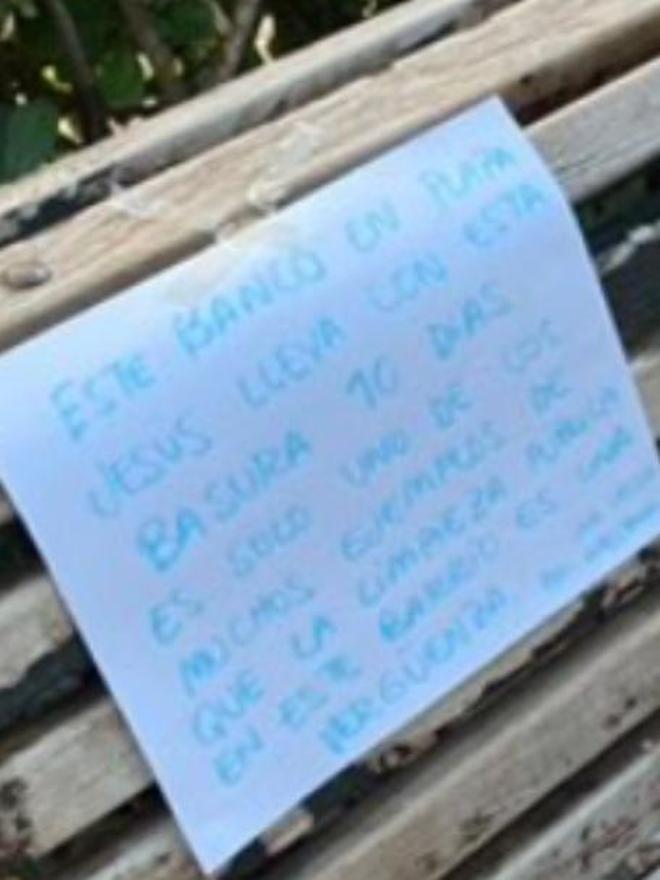 ESTE BANCO EN PLAZA
JESUS LLEVA CON ESTA
BASURA 10 DIAS
ES SOLO UNO DE LOS
MUCHOS EJEMPLOS DE
QUE LA LIMPIEZA PUBLICA
EN ESTE BARRIO ES UNA
VERGUENZA